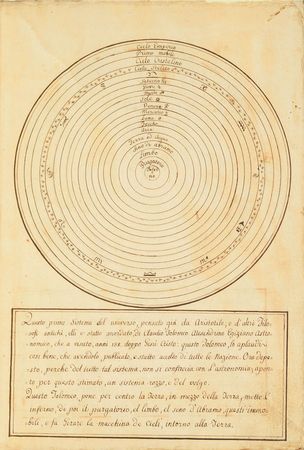 Cielo Empireo
Primo mobile
Cielo Cristalino
Cielo stellato
Saturno ♄
Giove ♃
Marte ♂
Sole
Venere ♀
Mercurio ☿
Luna
Fuoco
Aria
Terra ed Acqua
Seno di Abramo
Limbo
Purgatorio
Infer
no
Questo primo Sistema del universo, pensato già da Aristotile, e d'altri Filo-
sofi antichi, elli è stato accordato, di Claudio Tolomeo Alessandrino Egiziano Astro-
nomico, che a vissuto, anni 138. doppo Giesù Cristo: questo Tolomeo, lo aplaudì
così bene, che avendolo publicato, è stato accolto di tutte le Nazzioni. Ora depo-
sto, perche del tutto tal sistema, non si conferiva con l'astronomia, apun-
to per questo stimato, un sistema rozzo, e del volgo.
Questo Tolomeo, pone per centro la Terra, in mezzo della Terra, mette l'
inferno, di poi il purgatorio, el limbo, el seno d'Abramo, questi immo-
bili, e fà girare la machina de Cieli, intorno alla Terra.